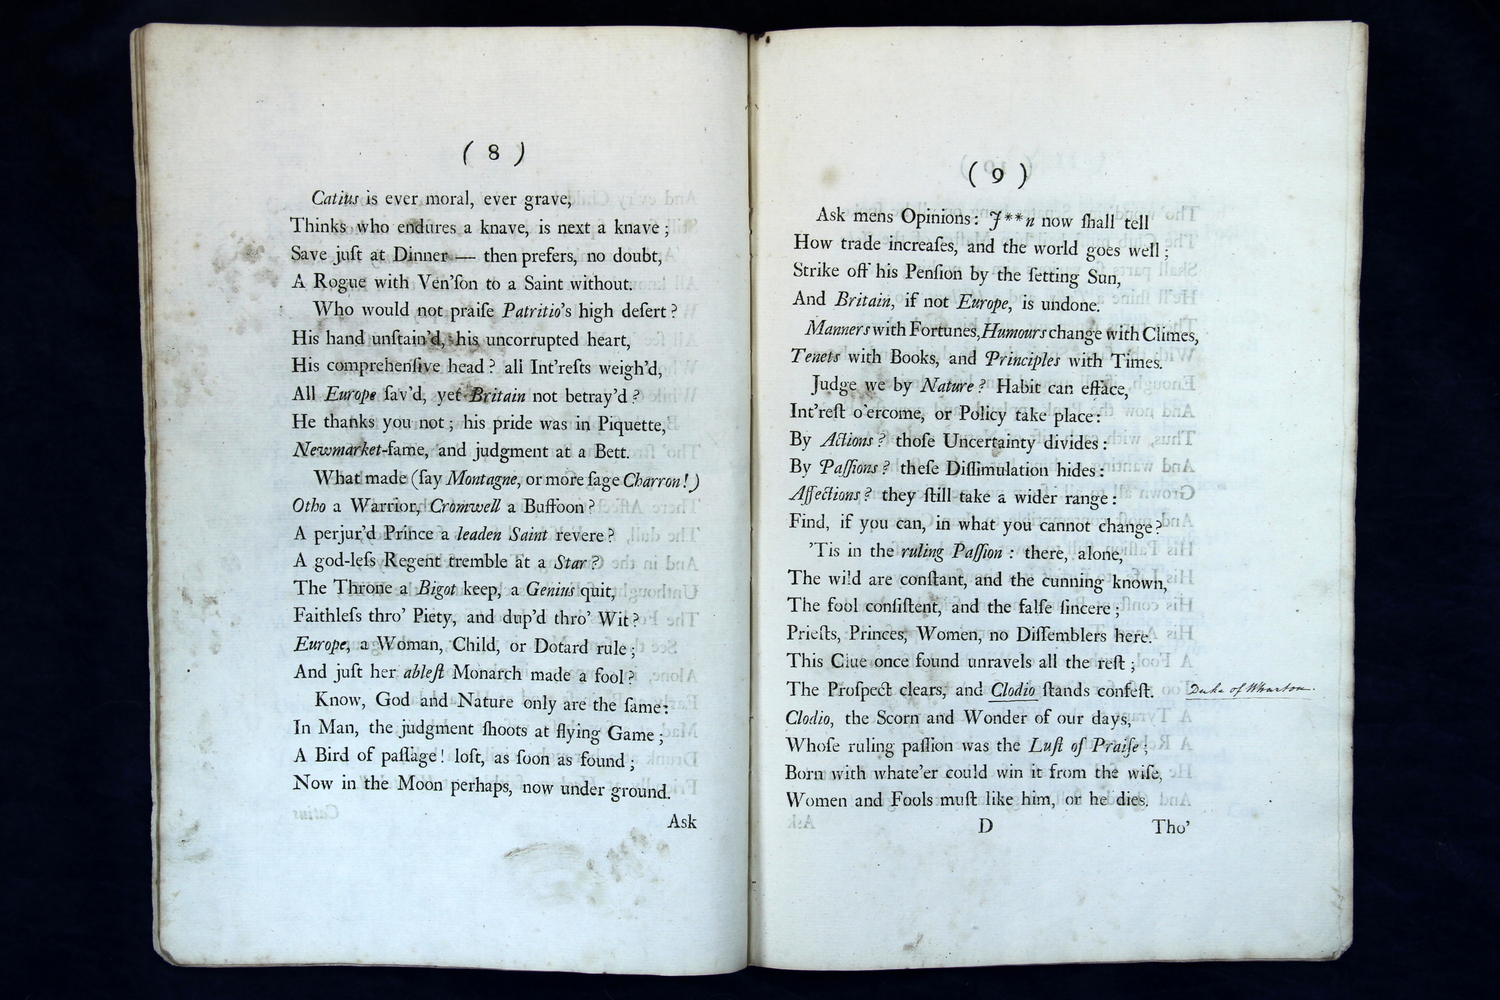 ( 8 )
Catius is ever moral, ever grave,
Thinks who endures a knave, is next a knave ;
Save juſt at Dinner — then prefers, no doubt,
A Rogue with Ven'ſon to a Saint without.
Who would not praiſe Patritio's high deſert ?
His hand unſtain'd, his uncorrupted heart,
His comprehenſive head ? all Int'reſts weigh'd,
All Europe ſav'd, yet Britain not betray'd ?
He thanks you not ; his pride was in Piquette,
Newmarket-fame, and judgment at a Bett.
What made (ſay Montagne, or more ſage Charron !)
Otho a Warrior, Cromwell a Buffoon ?
A perjur'd Prince a leaden Saint revere ?
A god-leſs Regent tremble at a Star ?
The Throne a Bigot keep, a Genius quit,
Faithleſs thro' Piety, and dup'd thro' Wit ?
Europe, a Woman, Child, or Dotard rule ;
And juſt her ableſt Monarch made a fool ?
Know, God and Nature only are the ſame :
In Man, the judgment ſhoots at flying Game ;
A Bird of paſſage ! loſt, as ſoon as found ;
Now in the Moon perhaps, now under ground.
Ask
( 9 )
Ask mens Opinions : J**n now ſhall tell
How trade increaſes, and the world goes well ;
Strike off his Penſion by the ſetting Sun,
And Britain, if not Europe, is undone.
Manners with Fortunes, Humours change with Climes,
Tenets with Books, and Principles with Times.
Judge we by Nature ? Habit can efface,
Int'reſt o'ercome, or Policy take place :
By Actions ? thoſe Uncertainty divides :
By Paſſions ? theſe Diſſimulation hides :
Affections ? they ſtill take a wider range :
Find, if you can, in what you cannot change ?
'Tis in the ruling Paſſion : there, alone,
The wild are conſtant, and the cunning known,
The fool conſiſtent, and the falſe ſincere ;
Prieſts, Princes, Women, no Diſſemblers here.
This Clue once found unravels all the reſt ;
The Proſpect clears, and Clodio ſtands confeſt. Duke of Wharton.
Clodio, the Scorn and Wonder of our days,
Whoſe ruling paſſion was the Luſt of Praiſe ;
Born with whate'er could win it from the wiſe,
Women and Fools muſt like him, or he dies.
D Tho'